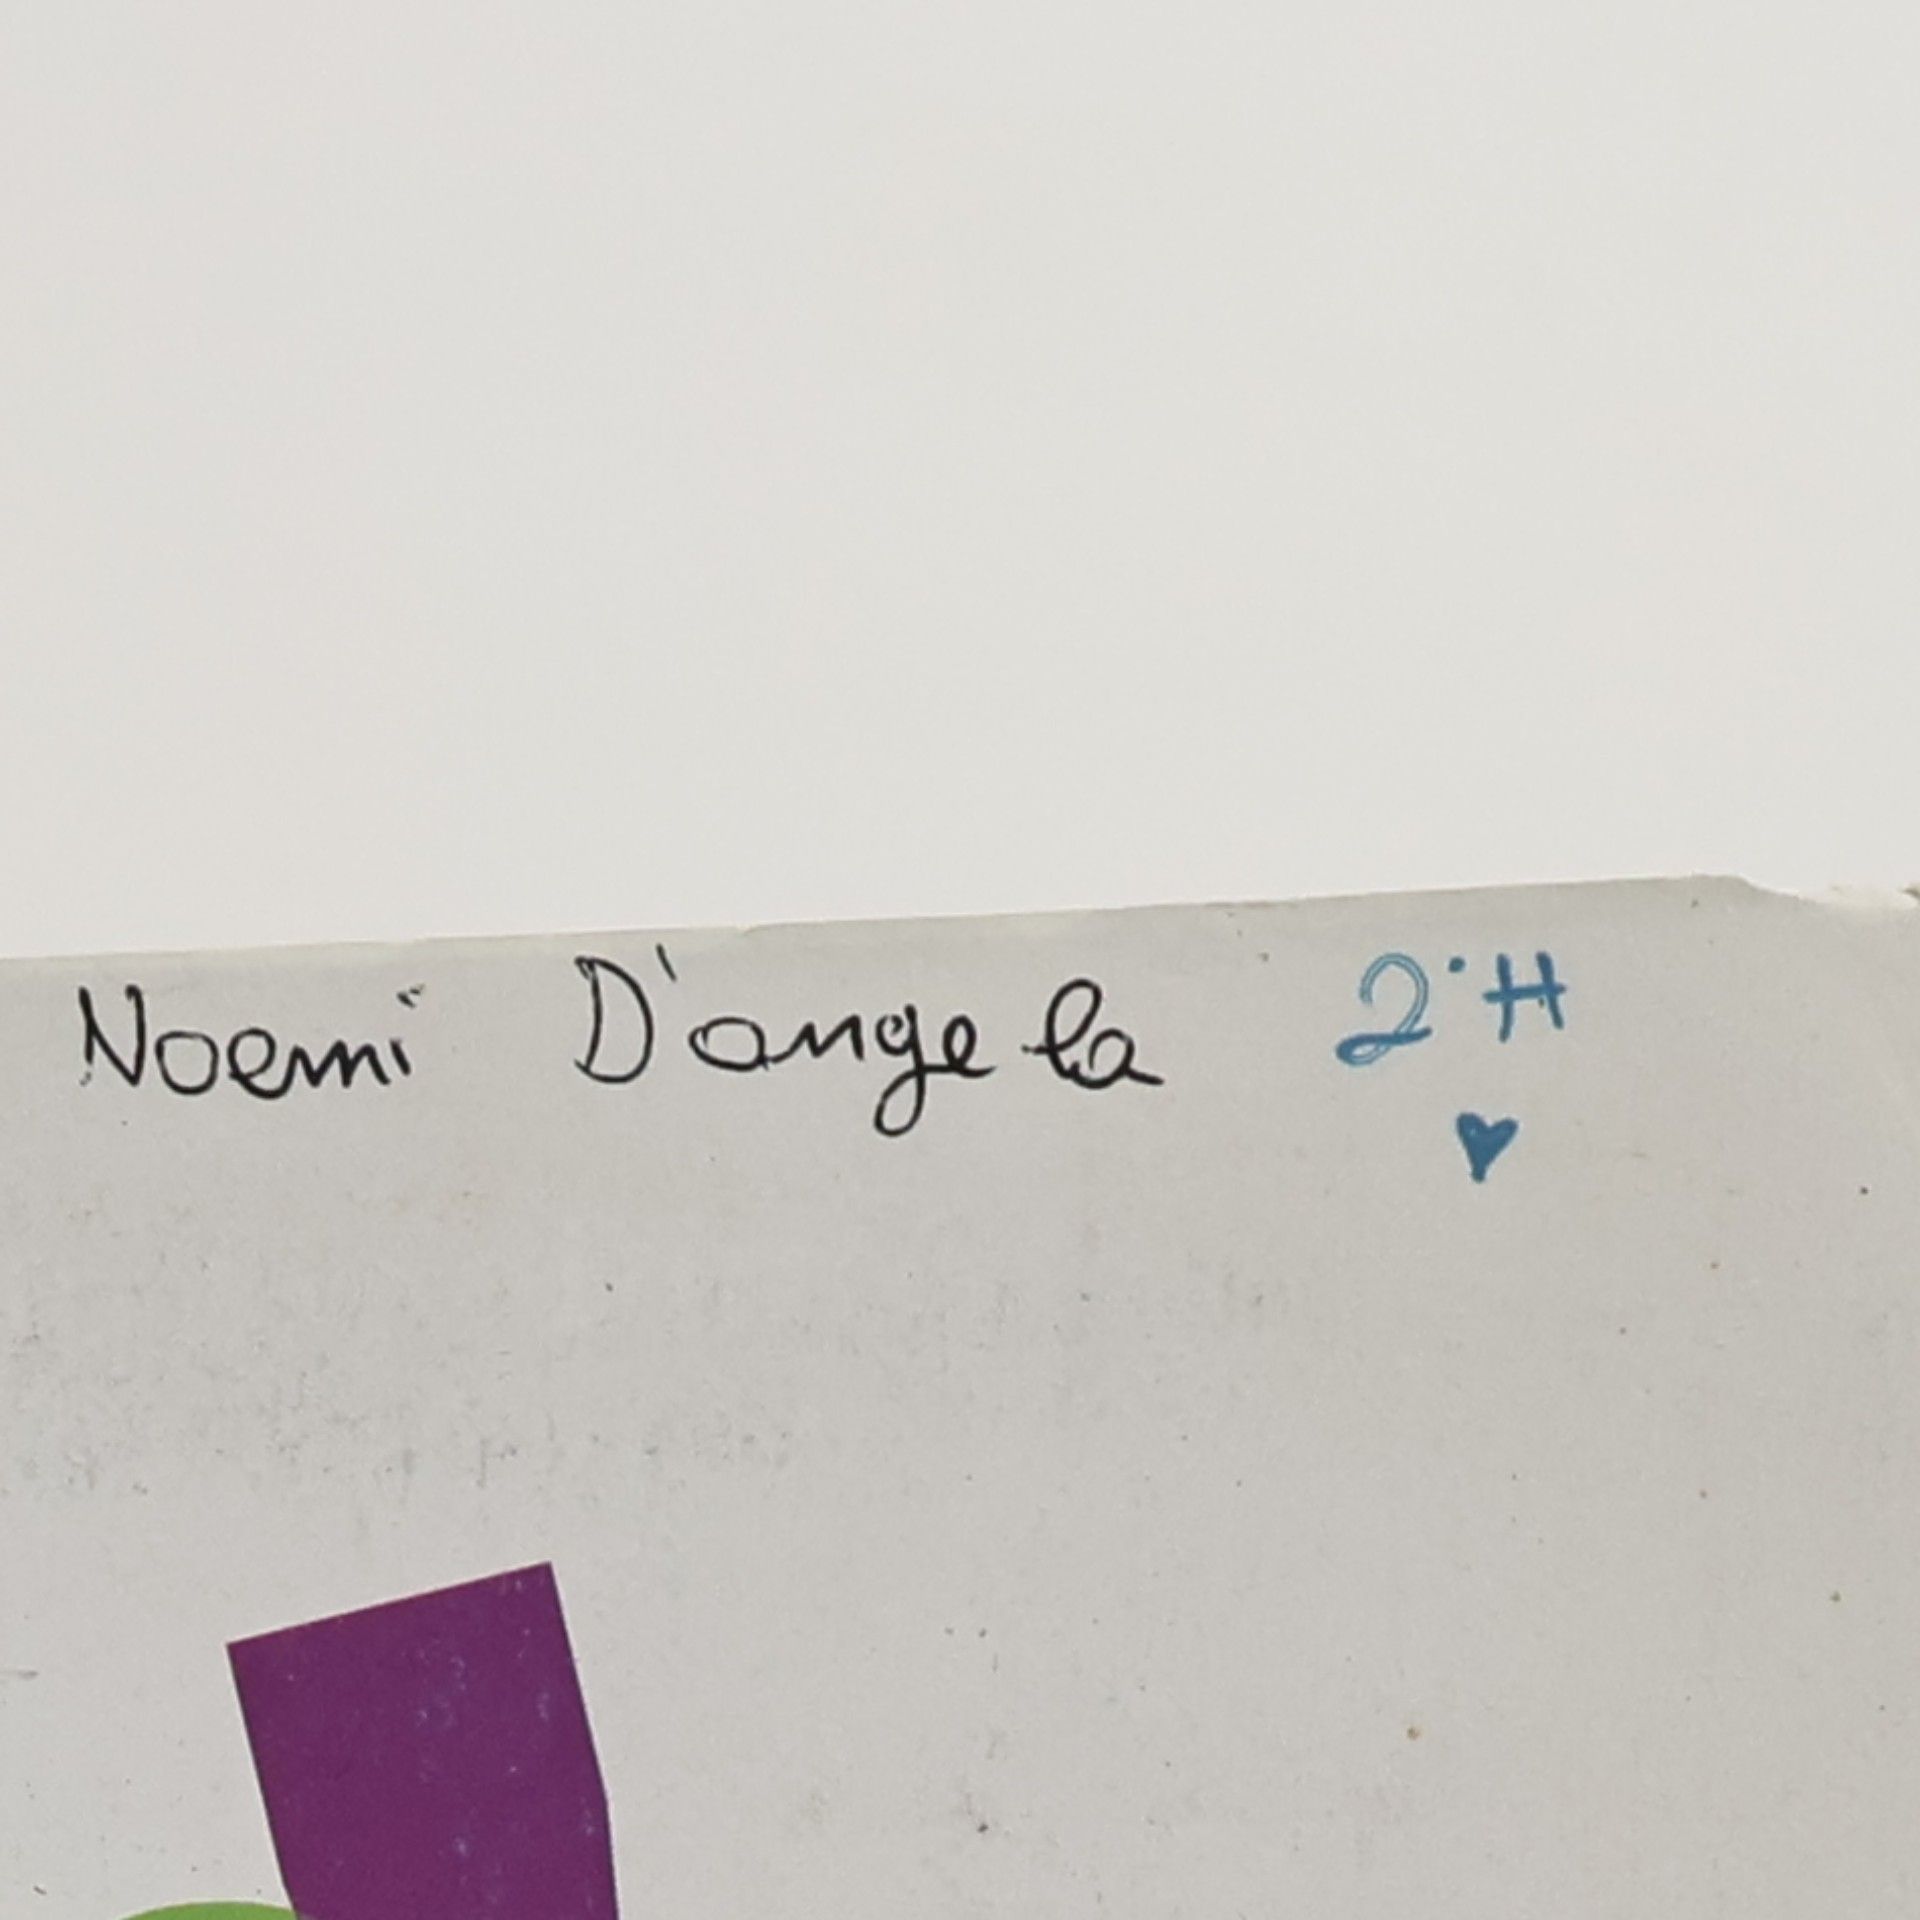 Noemi D'angela 2°H